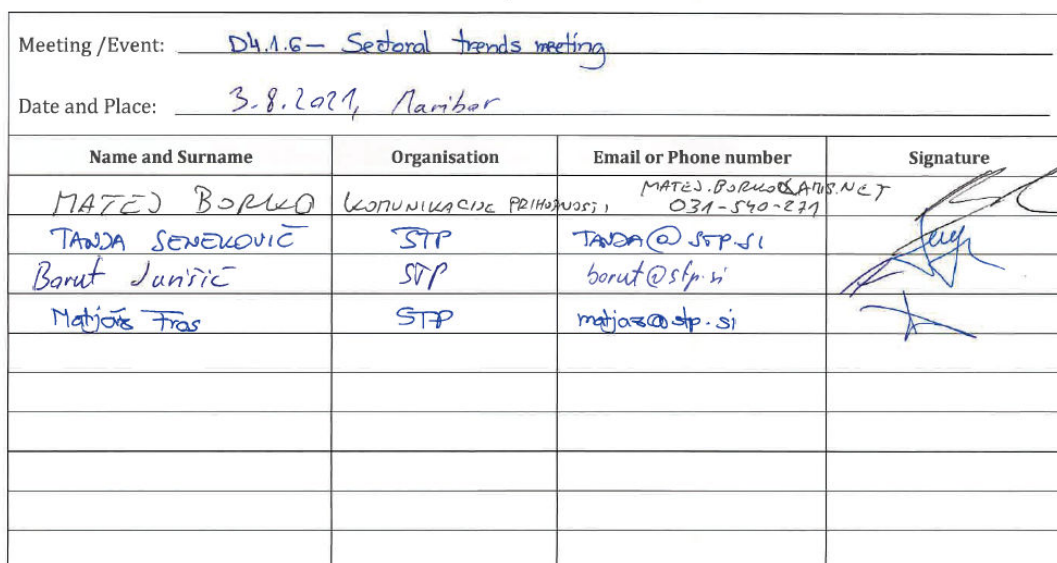 Meeting /Event: D4.1.6 - Sectoral trends meeting
Date and Place: 3.8.2021, Maribor
Name and Surname Organisation Email or Phone number Signature
MATEJ BORKO KOMUNIKACIJE PRIHODNOSTI MATEJ.BORKO@AMIS.NET
031-540-271
TANJA SENEKOVIČ STP TANJA@STP.SI
Borut Jurišič STP borut@stp.si
Matjaž Fras STP matjaz@stp.si